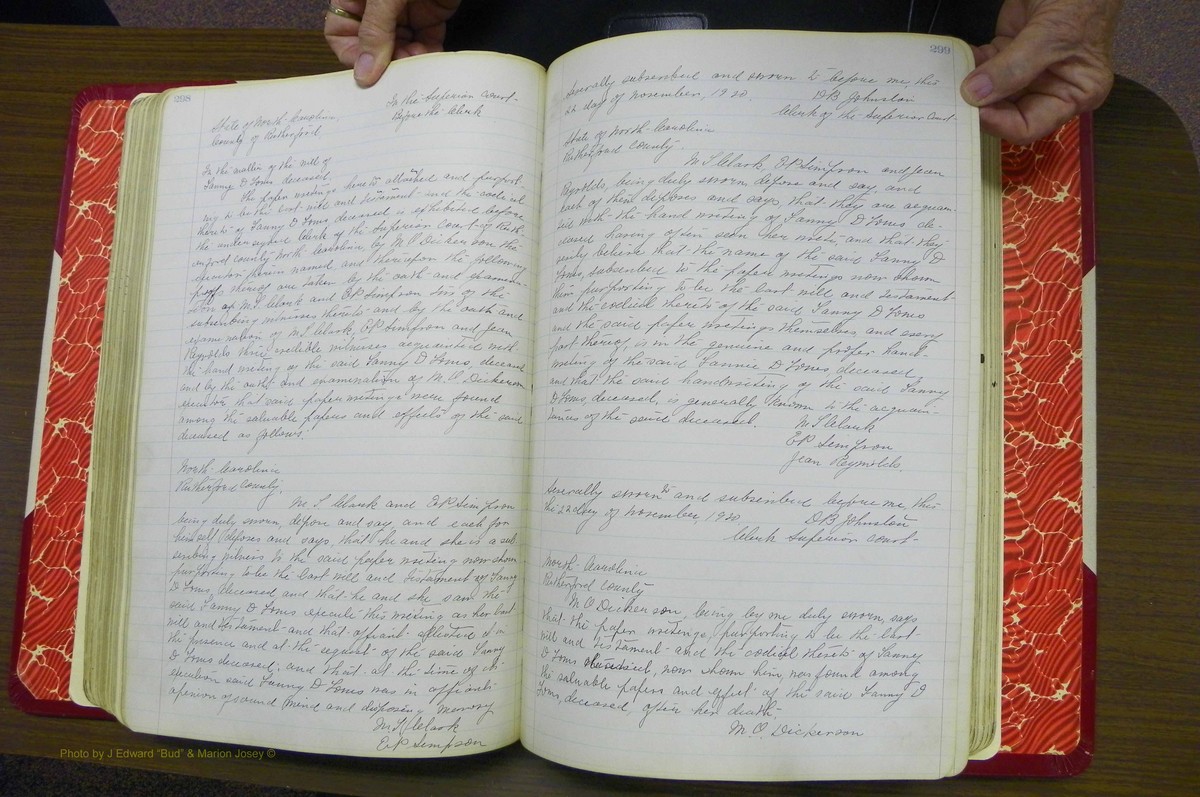 298
State of North Carolina,
County of Rutherford
In the Superior Court
Before the Clerk
In the matter of the will of
Fanny D Toms deceased.
The paper writings hereto attached and purport-
ing to be the last will and testament and the codicil
thereto of Fanny D Toms deceased is exhibited before
the undersigned Clerk of the Superior Court of Ruth-
erford County North Carolina by M. O Dickerson the
executor therein named, and thereupon the following
proof thereof are taken by the oath and examina-
tion of M. L. Clark and E P Simpson two of the
subscribing witnesses thereto and by the oath and
examination of M L Clark, E P Simpson and Jean
Reynolds three credible witnesses acquainted with
the hand writing of the said Fanny D Toms, deceased
and by the oath and examination of M. O. Dickerson
executor that said paper writings were found
among the valuable papers and effects of the said
deceased as follows:
North Carolina
Rutherford County.
M L Clark and E P Simpson
being duly sworn, depose and say, and each for
himself deposes and says, that he and she is a sub-
scribing witness to the said paper writing now shown
purporting to be the last will and testament of Fanny
D Toms, deceased, and that he and she saw the
said Fanny D Toms execute this writing as her last
will and testament and that affiant attested it in
the presence and at the request of the said Fanny
D Toms deceased, and that at the time of its
execution said Fanny D Toms was in affiants
opinion of sound mind and disposing memory
M L Clark
E P Simpson
299
Severally subscribed and sworn to before me, this
22 day of November, 1920.
D B Johnston
Clerk of the Superior Court
State of North Carolina
Rutherford County
M L Clark, E P Simpson and Jean
Reynolds, being duly sworn, depose and say, and
each of them deposes and says, that they are acquain-
ted with the hand writing of Fanny D Toms de-
ceased having often seen her write, and that they
verily believe that the name of the said Fanny D
Toms, subscribed to the paper writings now shown
them purporting to be the last will and testament
and the codicil thereto of the said Fanny D Toms
and the said paper writings themselves and every
part thereof, is in the genuine and proper hand-
writing of the said Fannie D Toms deceased,
and that the said handwriting of the said Fanny
D Toms, deceased, is generally known to the acquain-
tances of the said deceased.
M L Clark
E P Simpson
Jean Reynolds.
Severally sworn to and subscribed before me, this
the 22 day of November, 1920
D B Johnston
Clerk Superior Court
North Carolina
Rutherford County
M. O Dickerson, being by me duly sworn, says
that the paper writings, purporting to be the last
will and testament and the codicil thereto of Fanny
D Toms deceased, now shown him, was found among
the valuable papers and effects of the said Fanny D
Toms, deceased, after her death.
M. O. Dickerson
Photo by J Edward "Bud" & Marion Josey ©